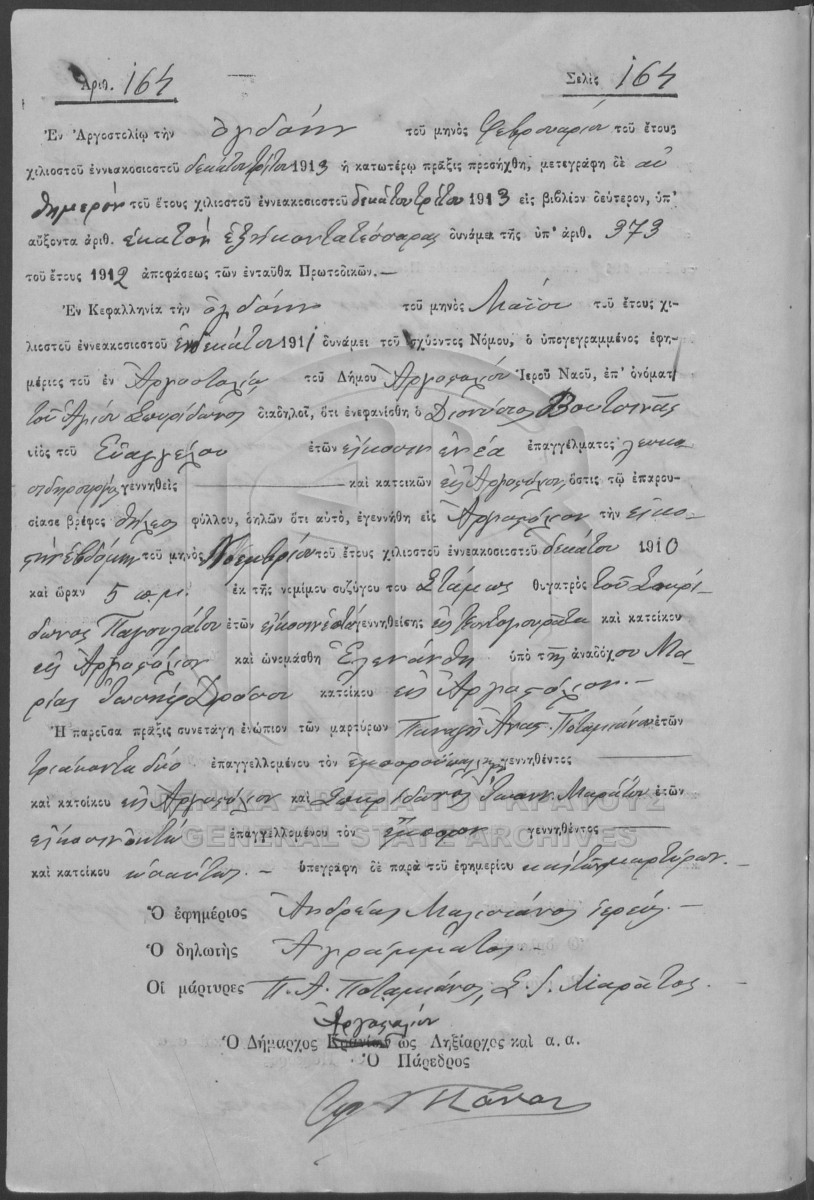 Ἀριθ. 164 Σελὶς 164
Ἐν Ἀργοστολίῳ τὴν ὀγδόην τοῦ μηνὸς Φεβρουαρίου τοῦ ἔτους
χιλιοστοῦ ἐννεακοσιοστοῦ δεκάτου τρίτου 1913 ἡ κατωτέρω πρᾶξις προσήχθη, μετεγράφη δὲ αὐ
θημερὸν τοῦ ἔτους χιλιοστοῦ ἐννεακοσιοστοῦ δεκάτου τρίτου 1913 εἰς βιβλίον δεύτερον, ὑπ'
αὔξοντα ἀριθ. ἑκατὸν ἑξήκοντα τέσσαρας δυνάμει τῆς ὑπ' ἀριθ. 373
τοῦ ἔτους 1912 ἀποφάσεως τῶν ἐνταῦθα Πρωτοδικῶν.—
Ἐν Κεφαλληνίᾳ τὴν ὀγδόην τοῦ μηνὸς Μαΐου τοῦ ἔτους χι-
λιοστοῦ ἐννεακοσιοστοῦ ἑνδεκάτου 1911 δυνάμει τοῦ ἰσχύοντος Νόμου, ὁ ὑπογεγραμμένος ἐφη-
μέριος τοῦ ἐν Ἀργοστολίῳ τοῦ Δήμου Ἀργοστολίου Ἱεροῦ Ναοῦ, ἐπ' ὀνόματι
τοῦ Ἁγίου Σπυρίδωνος διαδηλοῖ, ὅτι ἐνεφανίσθη ὁ Διονύσιος Βουτσινᾶς
υἱὸς τοῦ Εὐαγγέλου ἐτῶν εἴκοσιν ἐννέα ἐπαγγέλματος λευκο
σιδηρουργὸς γεννηθεὶς — καὶ κατοικῶν εἰς Ἀργοστόλιον, ὅστις τῷ ἐπαρου-
σίασε βρέφος θήλεος φύλλου, δηλῶν ὅτι αὐτό, ἐγεννήθη εἰς Ἀργοστόλιον τὴν εἰκο-
στὴν ἑβδόμην τοῦ μηνὸς Νοεμβρίου τοῦ ἔτους χιλιοστοῦ ἐννεακοσιοστοῦ δεκάτου 1910
καὶ ὥραν 5 π.μ. ἐκ τῆς νομίμου συζύγου του Στάμως θυγατρὸς τοῦ Σπυρί-
δωνος Παγουλάτου ἐτῶν εἴκοσιν ἑπτὰ γεννηθείσης εἰς καὶ κατοίκου
εἰς Ἀργοστόλιον καὶ ὠνομάσθη Ἑλενάνθη ὑπὸ τῆς ἀναδόχου Μα-
ρίας Δρόσου κατοίκου εἰς Ἀργοστόλιον.—
Ἡ παροῦσα πρᾶξις συνετάγη ἐνώπιον τῶν μαρτύρων Παναγῆ Ἀναστ. Ποταμιάνου ἐτῶν
τριάκοντα δύο ἐπαγγελλομένου τὸν ἐμποροϋπάλληλον γεννηθέντος —
καὶ κατοίκου εἰς Ἀργοστόλιον καὶ Σπυρίδωνος Ἰωάνν. Μαράτου ἐτῶν
εἴκοσιν ὀκτώ ἐπαγγελλομένου τὸν ἔμπορον γεννηθέντος —
καὶ κατοίκου ὡσαύτως.— ὑπεγράφη δὲ παρὰ τοῦ ἐφημερίου καὶ τῶν μαρτύρων.—
Ὁ ἐφημέριος Ἀνδρέας ἱερεύς.—
Ὁ δηλωτὴς Ἀγράμματος.—
Οἱ μάρτυρες Π. Α. Ποταμιάνος, Σ. Ι. Μαρᾶτος.—
Ἀργοστολίου
Ὁ Δήμαρχος Κρανίων ὡς Ληξίαρχος καὶ α. α.
Ὁ Πάρεδρος
ΓΕΝΙΚΑ ΑΡΧΕΙΑ ΤΟΥ ΚΡΑΤΟΥΣ
GENERAL STATE ARCHIVES